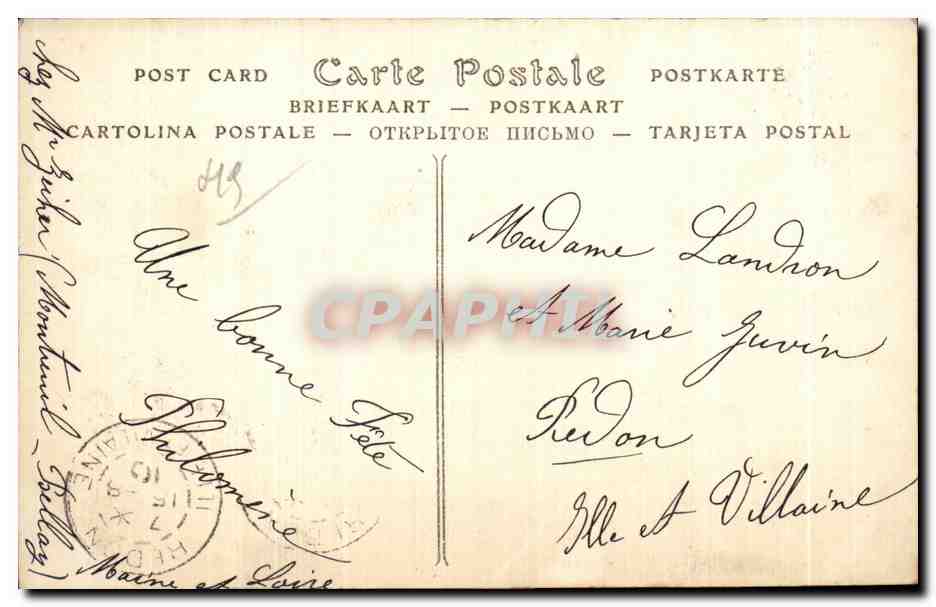 POST CARD Carte Postale POSTKARTE
BRIEFKAART — POSTKAART
CARTOLINA POSTALE — ОТКРЫТОЕ ПИСЬМО — TARJETA POSTAL
Une
bonne
Fête
Philomène
chez Mr Zuiher (Montreuil - Bellay)
Maine et Loire
Madame Landron
et Marie Guvin
Redon
Ille et Villaine
CPAPHIL
REDON
ILLE-ET-VILAINE